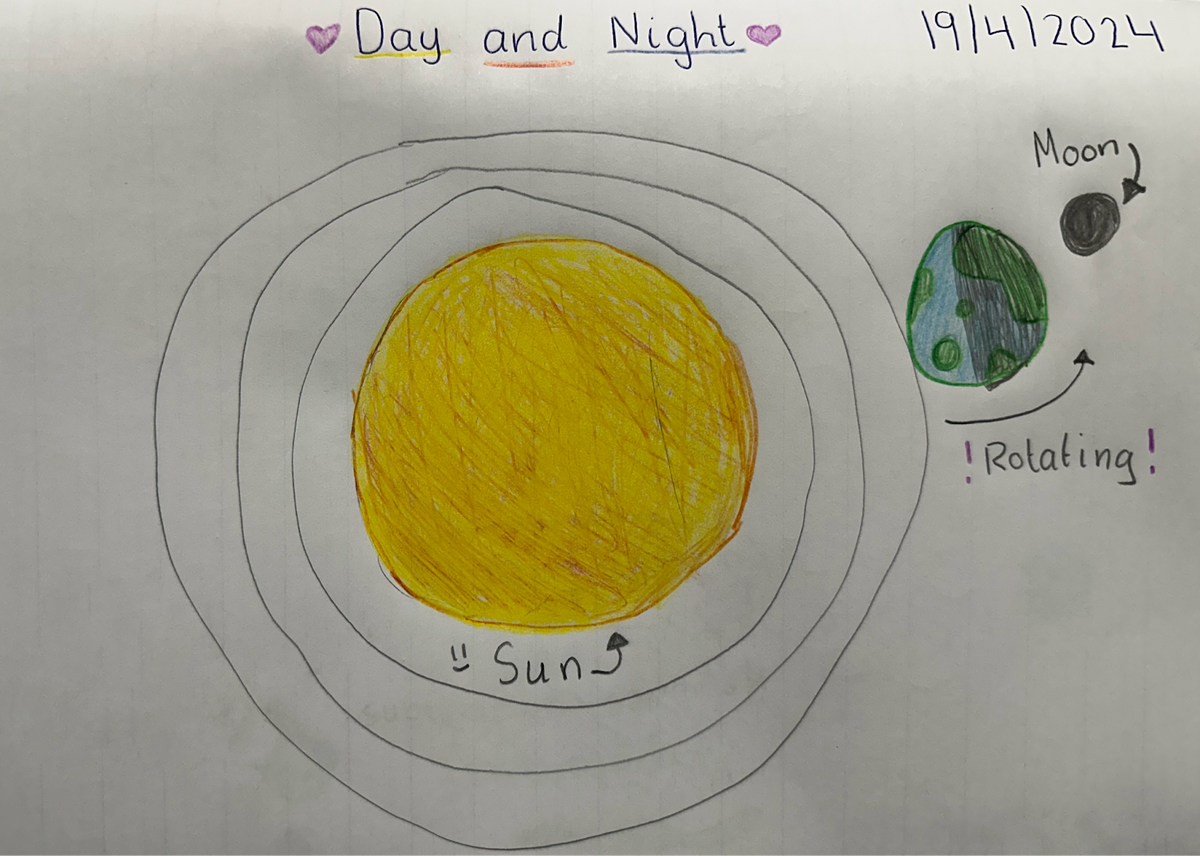 Day and Night
19/4/2024
Moon
! Rotating !
Sun